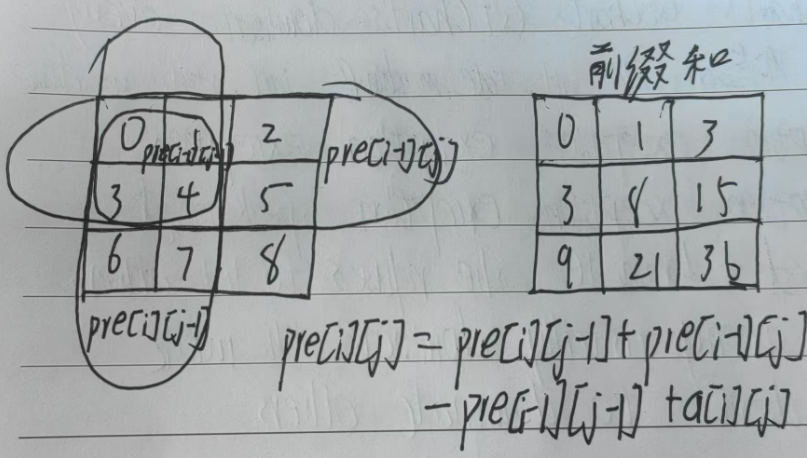 前缀和
0 pre[i-1][j-1] 2 pre[i-1][j]
3 4 5
6 7 8
pre[i][j-1]
0 1 3
3 8 15
9 21 36
pre[i][j] = pre[i][j-1] + pre[i-1][j]
- pre[i-1][j-1] + a[i][j]